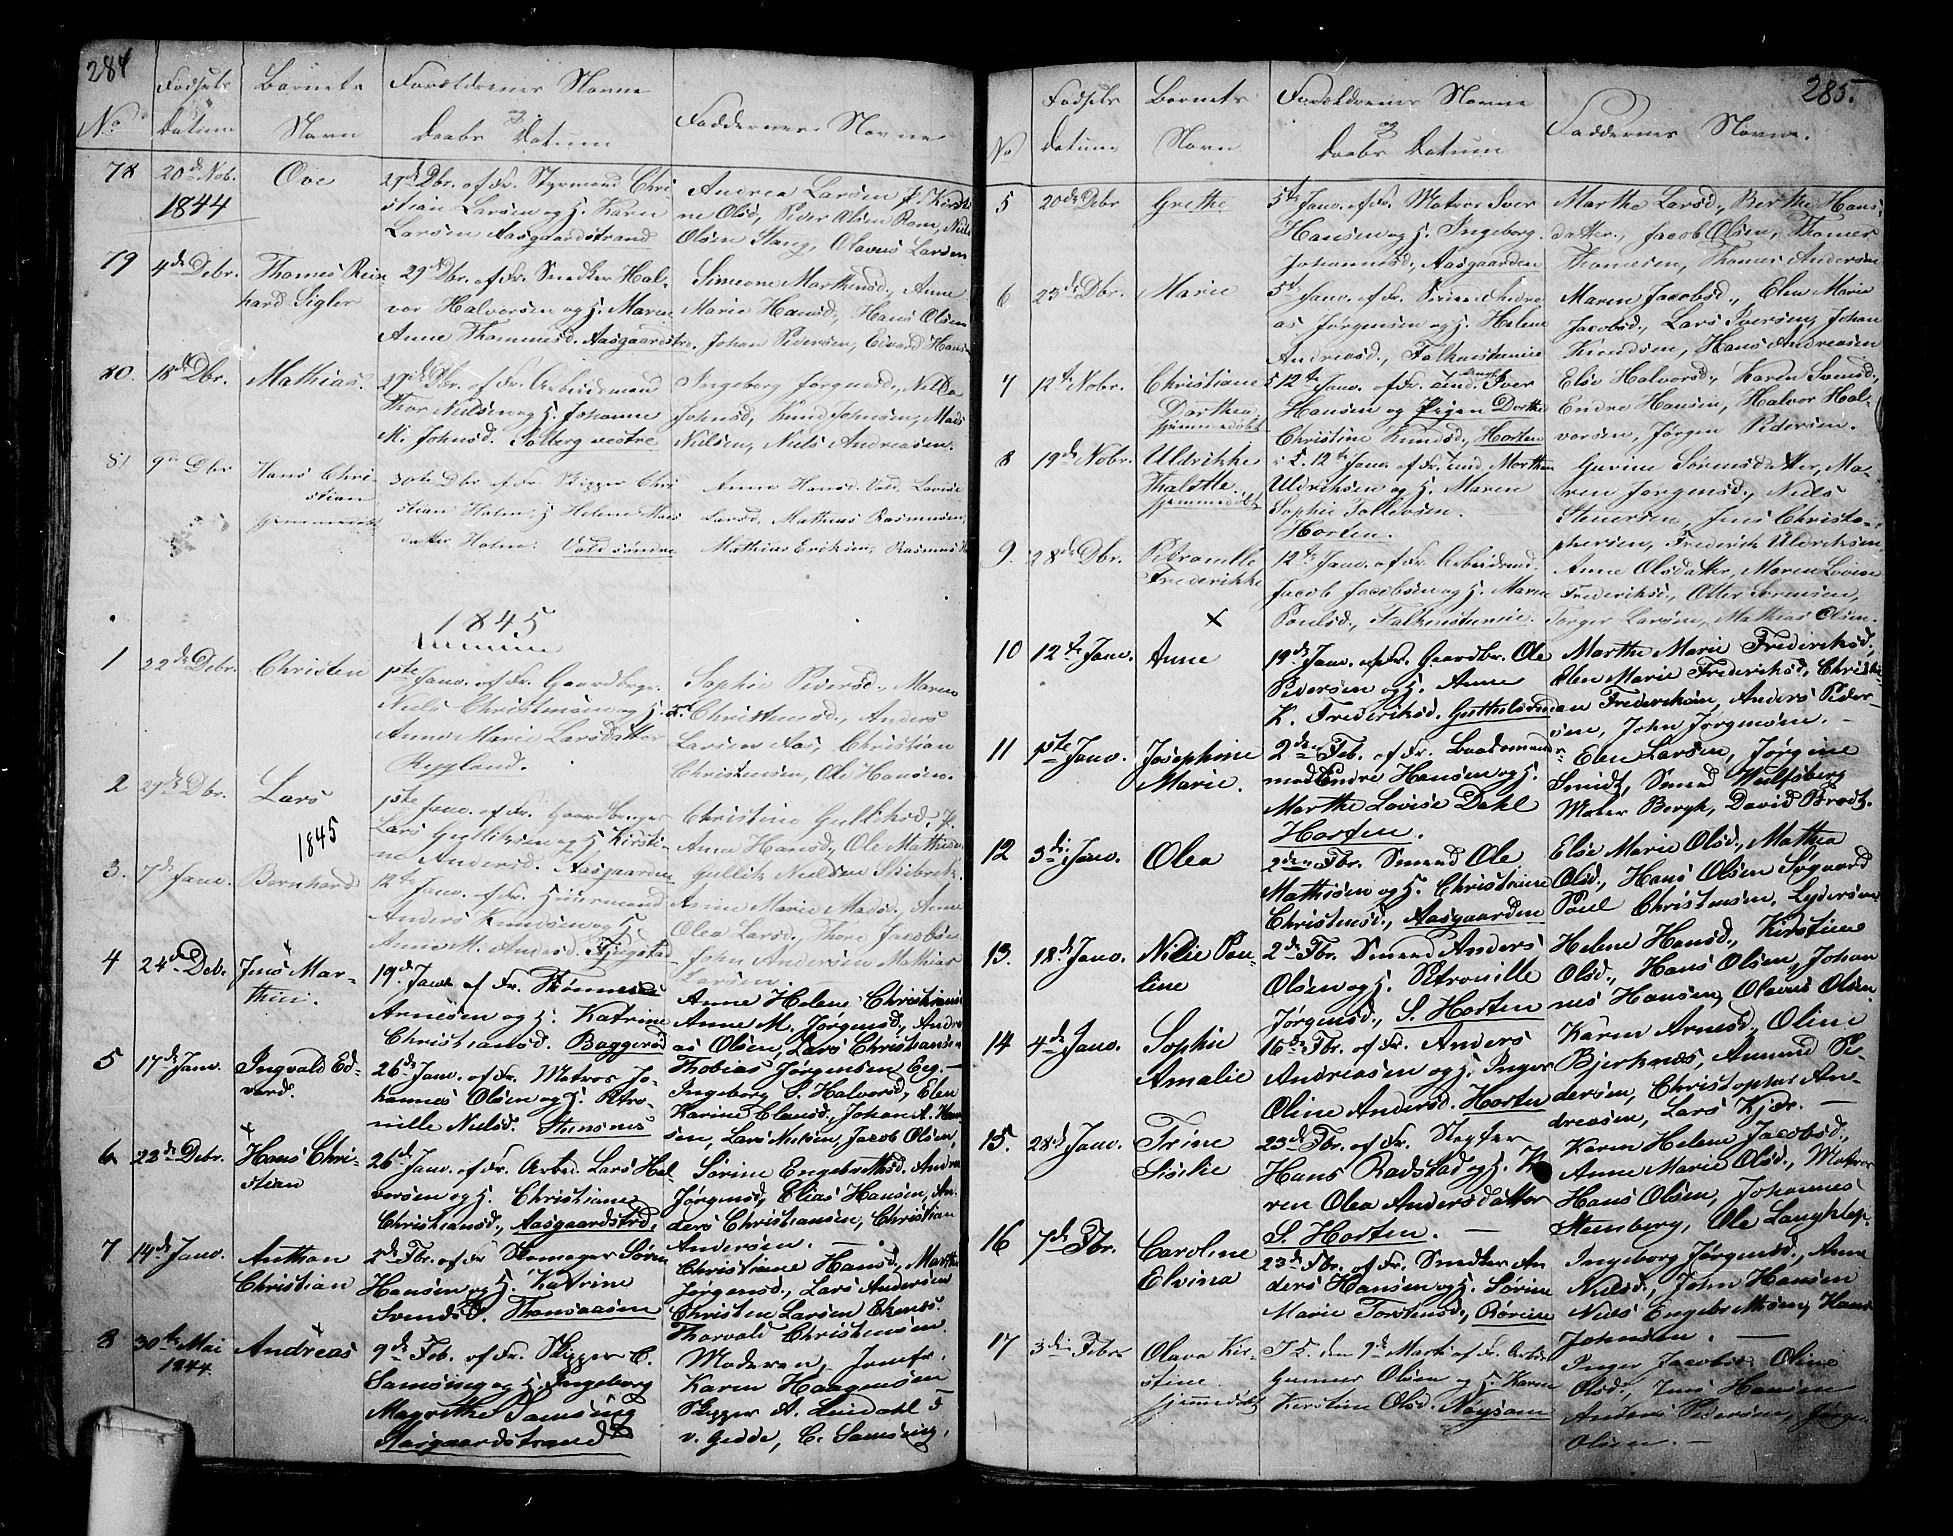 284
No
Fødsels Datum
Barnets Navn
Forældrenes Navne og Daabs Datum
Faddernes Navne
78
20de Nob. 1844
Ove
29de Dbr. af Fr. Styrmand Chri-
stian Larsen og H. Karen
Larsen Aasgaardstrand
Andrea Larsen J. Kirsti-
ne Olsd, Peder Olsen Rom, Niels
Olsen Stang, Olavus Larsen
79
4de Debr.
Thomas Rein
hard Sigler
29de Dbr. af Fr. Snedker Hal-
vor Halvorsen og H. Maren
Anne Thommesd. Aasgaardstr.
Simeone Marthinsd, Anne
Marie Hansd, Hans Olsen
Johan Pedersen, Edvard Hansn
80.
18de Dbr.
Mathias.
29de Dbr. af Fr. Arbeidsmand
Thor Nielsen og H. Johanne
M. Johnsd. Solberg vestre
Ingeborg Jørgensd,
Johnsd, Knud Johnsen, Mads
Nielsen, Niels Andreasen.
81
9de Dbr
Hans Chri
stian
hjemmedøbt
30te Dbr af Fr. Skipper Chri
stian Holm, H Helene Mads
datter Holm. Vold søndre
Anne Hansd. Vold, Lovise
Larsd, Mathias Rasmussen,
Mathias Eriksen, Rasmus
1845
1
22de Debr.
Christen
1ste Janv. af Fr. Gaardbrgr.
Niels Christensen og H.
Anne Marie Larsdatter
Ryggland.
Sophie Pedersd., Maren
Christensd., Anders
Larsen Aas, Christian
Christensen, Ole Hansen.
2
29de Dbr.
Lars
1ste Janv. af Fr. Gaardbruger
Lars Gulliksen og H. Kirsti-
ne Andersd. Aasgaarden
Christine Gulliksd, J.
Anne Hansd., Ole Mathisen
Gullik Nielsen Skibrek.
1845
3.
7de Janv.
Bernhard
12te Janv. af Fr. Huusmand
Anders Knudsen og H.
Anne M. Andersd. Fjugstad
Anne Marie Madsd, Anne
Olea Larsd., Thore Jacobsen
John Andersen Mathias
Larsen
4
24de Debr.
Jens Mar-
thin.
19de Janv af Fr. Thommes
Arnesen og H. Katrine
Christiansd. Baggerød
Anne Helene Christians
Anne M. Jørgensd., Andre
as Olsen, Lars Christiansen
Thobias Jørgensen Eeg.
5
17de Janv.
Ingvald Ed-
vard.
26de Janv. af Fr. Matros Jo-
hannes Olsen og H. Petro-
nille Nielsd. Stensnes
Ingeborg S. Halvorsd, Elen
Karine Clausd., Johan A. Han
sen, Lars Nielsen, Jacob Olsen,
6
22de Debr.
Hans Chri-
stian
26de Janv. af Fr. Arbed. Lars Hal-
vorsen og H. Christiane
Christiansd., Aasgaardstrd.
Sørine Engebrethsd, Andrea
Jørgensd, Elias Hansen, An-
ders Christiansen, Christian
Andersen.
7
14de Janv.
Anthon
Christian
2de Fbr. af Fr. Skomager Søren
Hansen og H. Katrine
Svendsd. Thonsaasen
Christiane Hansd., Marthe
Jørgensd., Lars Andersen
Christen Larsen Ekenes.
Thorvald Christensen.
8
30te Mai
1844.
Andreas
9de Feb. af Fr. Skipper C.
Samsing og H. Ingeborg
Magrethe Samsing
Aasgaardstrand
Moderen, Jomfr.
Karen Haagensen
Skipper A. Lindahl
v. Gedde, C. Samsing.
285.
No
Fødsels Datum
Barnets Navn
Forældrenes Navne og Daabs Datum
Faddernes Navne.
5
20de Dbr
Grethe
5te Janv. af Fr. Matros Iver
Hansen og H. Ingeborg
Johannesd., Aasgaarden
Marthe Larsd., Berthe Hans-
datter., Jacob Olsen, Thomes
Thomesen, Thomes Andersen
6
23de Dbr.
Marie
5te Janv. af Fr. Andre
as Jørgensen og H. Helene
Andreasd., Falkenstenie
Maren Jacobsd., Elen Marie
Jacobsd., Lars Iversen, Johan
Knudsen, Hans Andreasen
7
12te Nobr.
Christiane
Dorthea
hjemmedøbt
12te Janv. af Fr. Iver
Hansen og Pigen Dorthe
Christine Knudsd., Horten
Else Halvorsd., Karen Svensd.,
Endre Hansen, Halvor Hal-
vorsen, Jørgen Pedersen.
8
19de Nobr.
Uldrikke
Thalette
hjemmedøbt
i K. 12te Janv. af Fr. Morthen
Uldriksen og H. Maren
Sophie Tollevsen.
Horten.
Gurine Sørensdatter, Ma-
ren Jørgensd., Niels
Stenersen, Jens Christo-
phersen, Frederik Uldriksen,
9.
28de Dbr.
Petronille
Frederikke
12te Janv. af Fr. Arbeidsmd.
Jacob Jacobsen og H. Maren
Poulsd., Falkenstenie.
Anne Olsdatter, Maren Lovise
Frederiksd., Otter Sørensen,
Torger Larsen, Mathias Olsen.
10
12te Janv.
Anne
19de Janv. af Fr. Gaardbr. Ole
Pedersen og H. Anne
K. Frederiksd. Guttulsrud
Marthe Marie Frederiksd,
Elen Marie Frederiksd, Christi-
an Frederiksen, Anders Peder-
sen, John Jørgensen.
11
1ste Janv.
Josephine
Marie.
2den Feb. af Fr. Baadsmand-
mad Endre Hansen og H.
Marthe Lovise Dahl
Horten.
Elen Larsen, Jørgine
Smidt, Smed Wulfsberg
Maler Bergh, David Brodtz.
12
3die Janv.
Olea
2den Fbr. Smed Ole
Mathisen og H. Christiane
Christensd., Aasgaarden
Else Marie Olsd., Mathea
Olsd., Hans Olsen Søgaard
Poul Christensen, Lydersen
13.
18de Janv.
Nilie Pou-
line
2de Fbr. Smed Anders
Olsen og H. Petronille
Jørgensd., S. Horten
Helene Hansd., Kirstine
Olsd., Hans Olsen, Johan
nes Hansen, Olavus Olsen
14
4de Janv.
Sophie
Amalie
16de Fbr. af Fr. Anders
Andreasen og H. Inger
Oline Andersd. Horten
Karen Arnesd., Oline
Bjerknes, Amund Pe-
dersen, Christopher An-
dreasen, Lars Kjær.
15.
28de Janv.
Trine
Sislie
23de Fbr. af Fr. Slagter
Hans Radstad og H. Ka
ren Olea Andersdatter
S. Horten.
Karen Helene Jacobsd.,
Anne Marie Olsd., Matros
Hans Olsen, Johannes
Stensberg, Ole Langklep.
16
7de Fbr.
Caroline
Elvina
23de Fbr. af Fr. Snedker An-
ders Hansen og H. Sørine
Marie Torstensd., Rørene
Ingeborg Jørgensd., Anne
Nielsd., John Hansen
Niels Engebrethsen, Hans
Johnsen.
17
3die Febr
Olava Kir-
stine
hjemmedøbt
I K. den 9de Marts af Fr. Arbei
Gunner Olsen og H. Karen
Kirstine Olsd. Nøysom
Inger Jacobsd. Oline
Olsd., Jens Hansen
Anders Pedersen, Jørgen
Olsen.